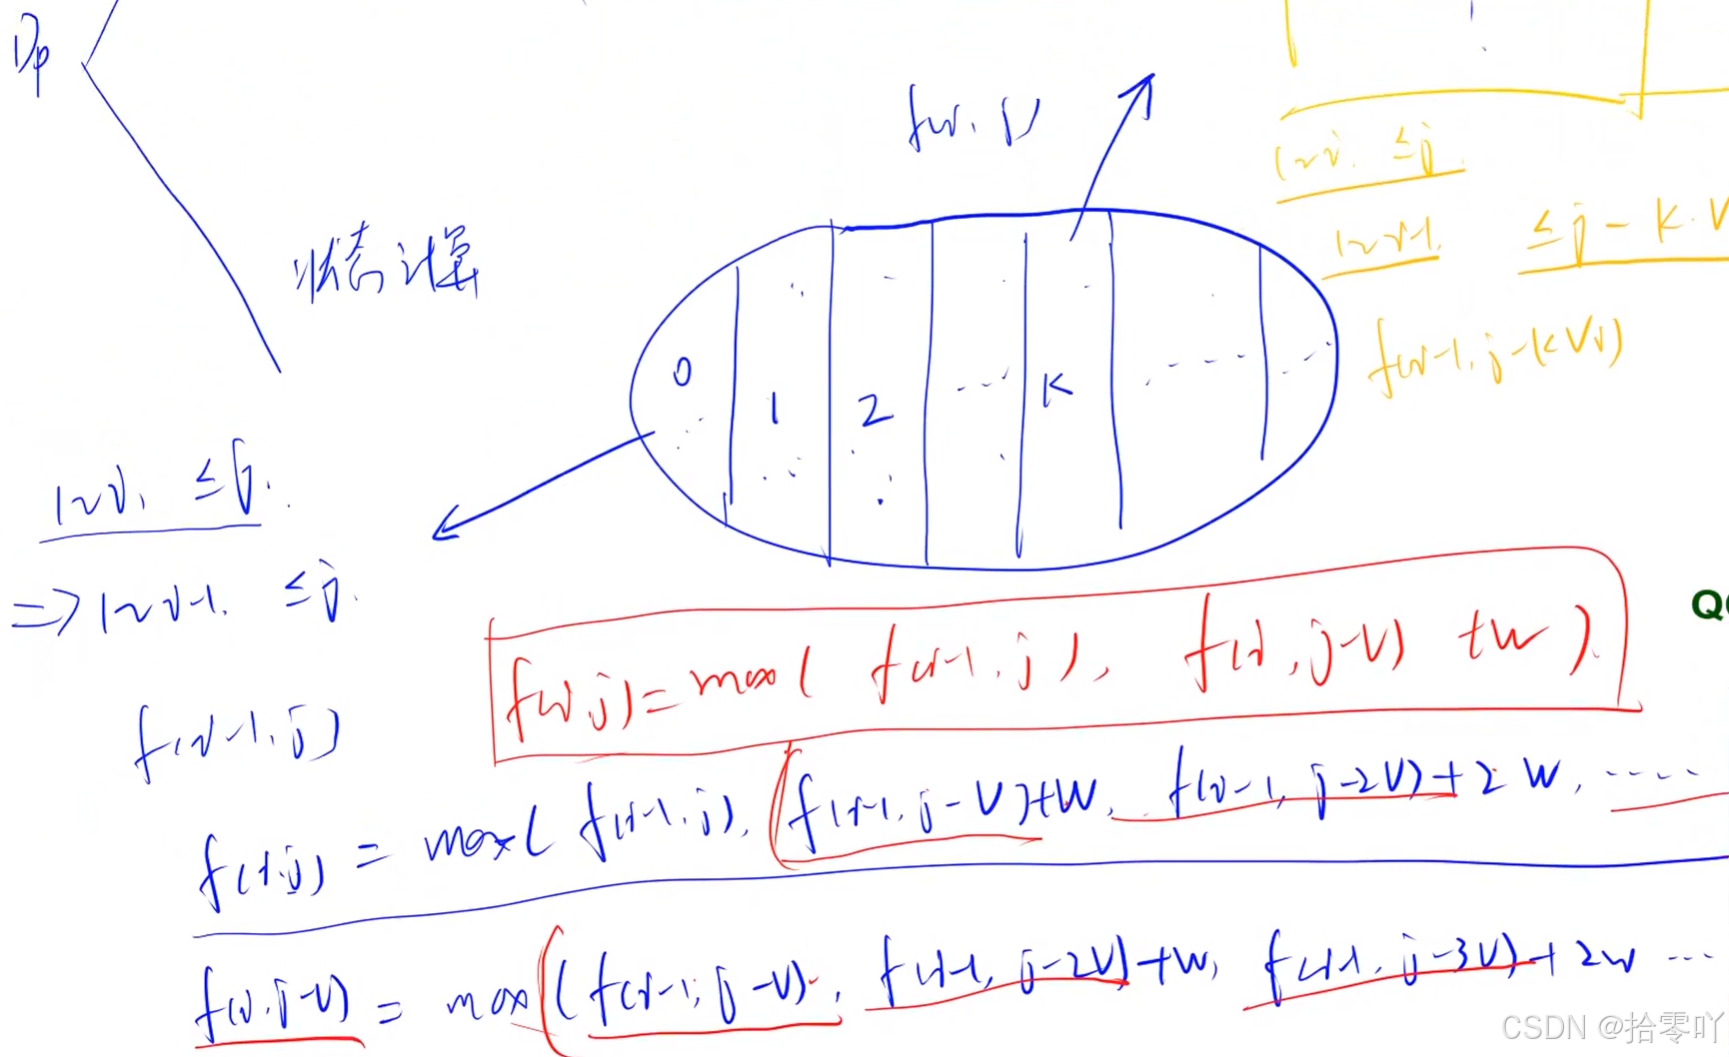 Dp
f(i, j)
1~i. ≤j
1~i-1. ≤j-k·V
状态计算
f(i-1, j-kVi)
0 1 2 ... K ......
1~i, ≤j.
=> 1~i-1. ≤j.
f(i,j)=max( f(i-1,j), f(i,j-V) +W ).
f(i-1,j)
f(i,j) = max( f(i-1,j), f(i-1,j-V)+W, f(i-1,j-2V)+2W, ·····
f(i,j-V) = max( f(i-1,j-V), f(i-1,j-2V)+W, f(i-1,j-3V)+2W ···
CSDN @拾零吖